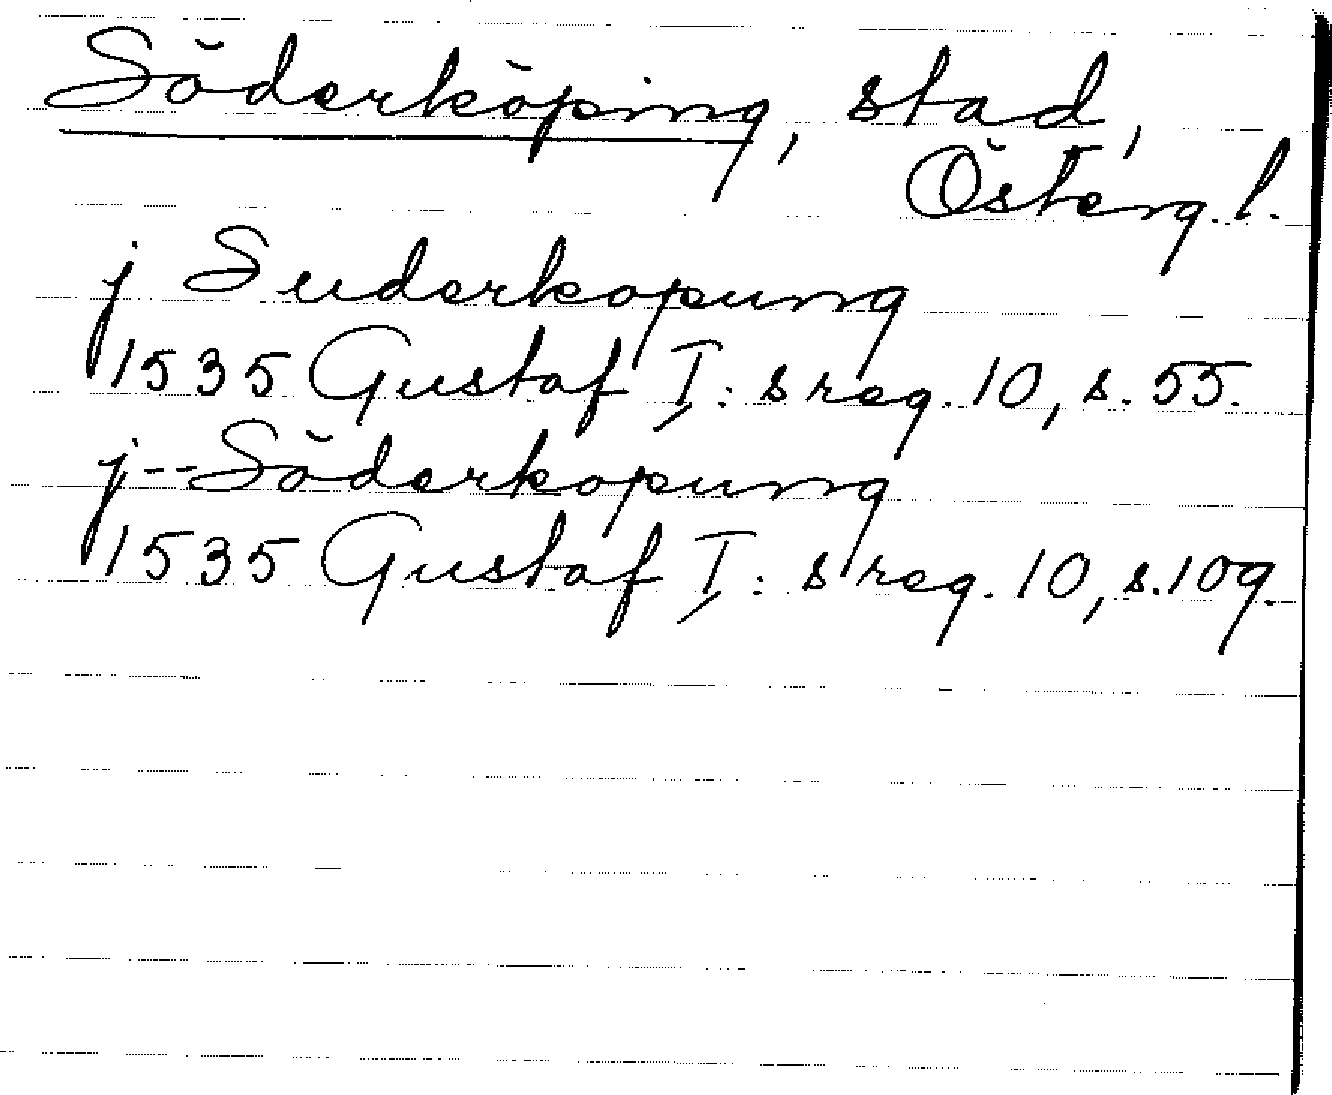 Söderköping, stad,
Österg. l.
j Suderkopung
1535 Gustaf I:s reg. 10, s. 55.
j -- Söderkopung
1535 Gustaf I:s reg. 10, s. 109.